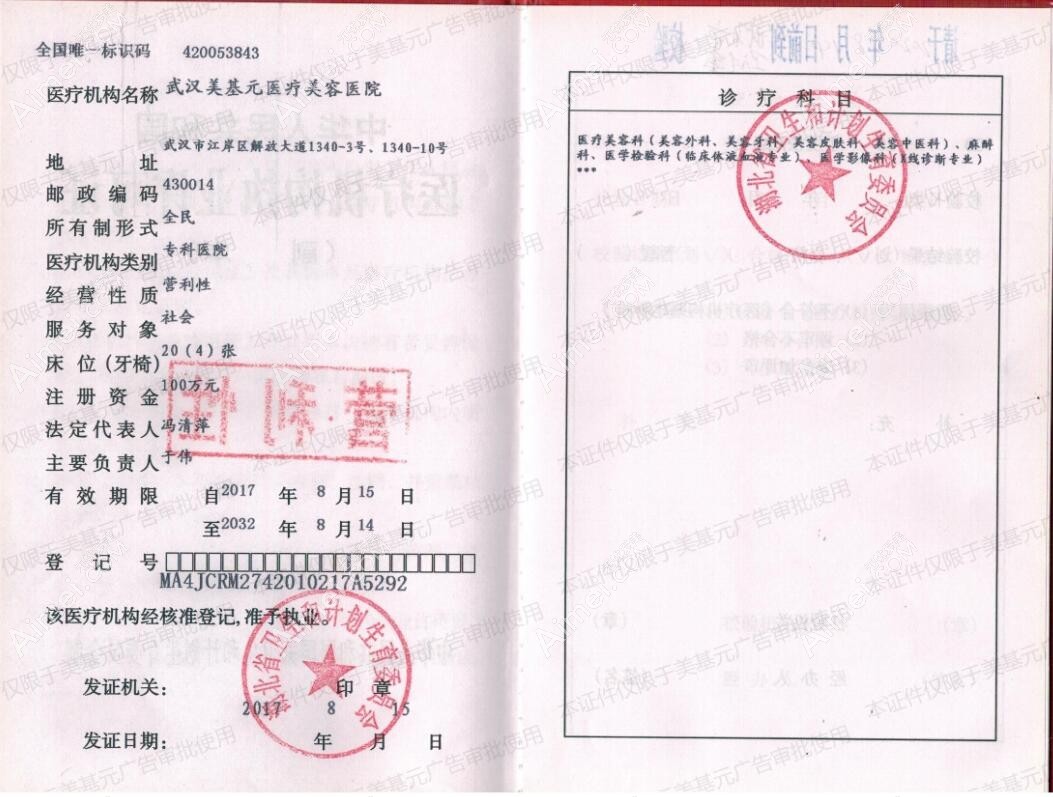 全国唯一标识码 420053843
医疗机构名称 武汉美基元医疗美容医院
地 址 武汉市江岸区解放大道1340-3号、1340-10号
邮政编码 430014
所有制形式 全民
医疗机构类别 专科医院
经营性质 营利性
服务对象 社会
床位(牙椅) 20(4)张
注册资金 100万元
法定代表人 冯清萍
主要负责人 于伟
有效期限 自2017 年 8 月 15 日
至2032 年 8 月 14 日
登记号
MA4JCRM2742010217A5292
该医疗机构经核准登记,准予执业。
发证机关: 印 章
2017 8 15
发证日期: 年 月 日
湖北省卫生和计划生育委员会
诊疗科目
医疗美容科(美容外科、美容牙科、美容皮肤科、美容中医科)、麻醉
科、医学检验科(临床体液血液专业)、医学影像科(X线诊断专业)
***
湖北省卫生和计划生育委员会
本证件仅限于美基元广告审批使用